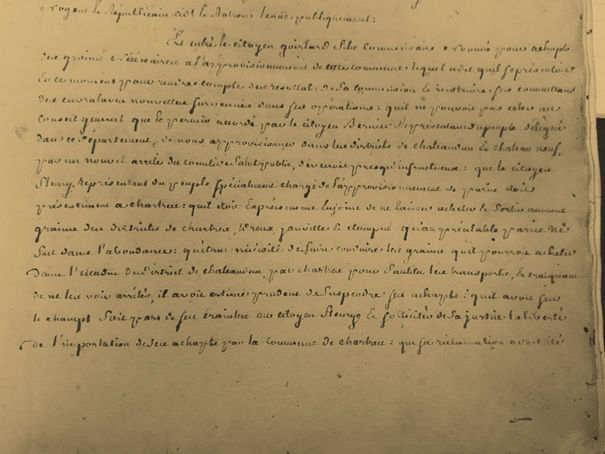 Nogent le Républicain et le Natrou tenüe publiquement :
Est entré le citoyen goislard fils commissaire nommé pour achapts
des grains nécessaires à l'approvisionnement de cette commune lequel a dit qu'il se présentoit
en ce moment pour rendre compte des resultats de sa commission et instruire ses commettans
des entraves nouvelles survenues dans ses opérations : qu'il ne pouvoit pas celer au
Conseil general que le permis accordé par le citoyen Bernier Représentant du peuple délégué
dans ce Département, de nous approvisionner dans les districts de chateaudun et chateau neuf,
par un nouvel arrêté du comité de Salut public, devenoit presqu'infructueux : que le citoyen
fleury, Représentant du peuple spécialement chargé de l'approvisionnement de paris étoit
présentement a chartres : qu'il étoit Expressément Enjoint de ne laisser acheter et sortir aucuns
grains des districts de chartres, dreux, janville et étampes qu'au préalable paris ne
fut dans l'abondance : qu'étant nécessité de faire conduire les grains qu'il pourroit acheter
Dans l'étendüe du District de chateaudun, par chartres pour facilité des transports, et craignant
de ne les voir arrêtés, il avoit estimé prudent de Suspendre ses achapts : qu'il avoit sur
le champ fait part de ses craintes au citoyen fleury et sollicité de sa justice la liberté
de l'importation de ses achapts par la commune de chartres : que sa réclamation avoit été